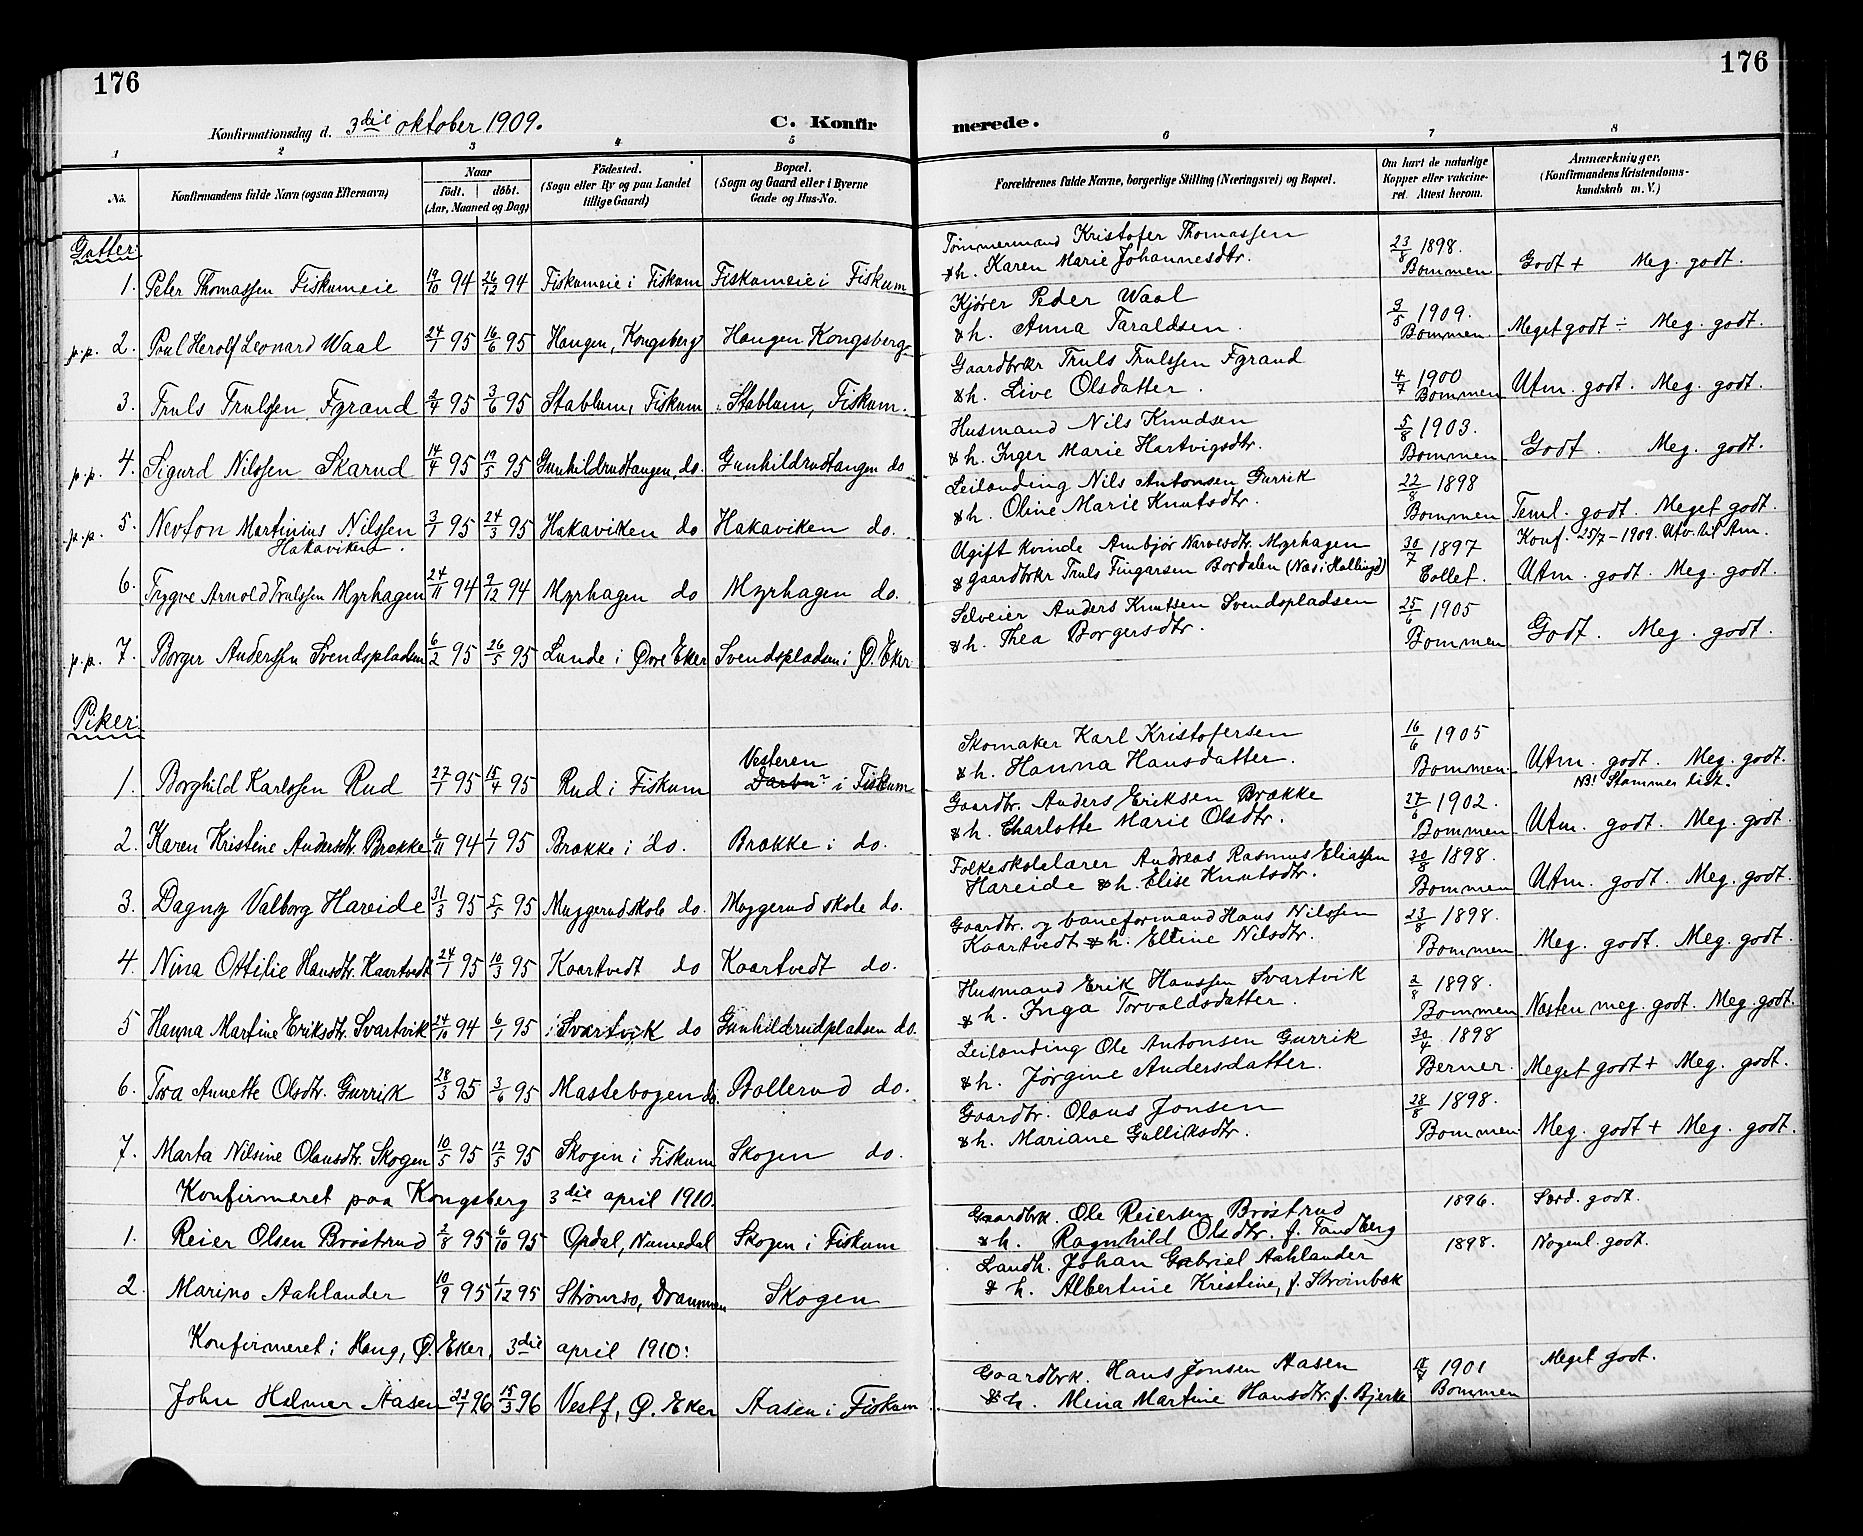 176
176
Konfirmationsdag d. 3die oktober 1909.
C. Konfirmerede.
1 2 3 4 5 6 7 8
No.
Konfirmandens fulde Navn (ogsaa Efternavn)
Naar
födt. döbt.
(Aar, Maaned og Dag)
Födested.
(Sogn eller By og paa Landet
tillige Gaard)
Bopæl.
(Sogn og Gaard eller i Byerne
Gade og Hus-No.
Forældrenes fulde Navne, borgerlige Stilling (Næringsvei) og Bopæl.
Om havt de naturlige
Kopper eller vakcine-
ret. Attest herom.
Anmærkninger.
(Konfirmandens Kristendoms-
kundskab m. V.)
Gutter:
1. Peter Thomassen Fiskumeie 19/10 94 26/12 94 Fiskumeie i Fiskum Fiskumeie i Fiskum Tømmermand Kristofer Thomassen & h. Karen Marie Johannesdtr. 23/8 1898. Bommen Godt + Meg. godt.
p.p. 2. Poul Herolf Leonard Waal 24/1 95 16/6 95 Haugen, Kongsberg Haugen Kongsberg Kjører Peder Waal & h. Anna Taraldsen. 3/5 1909. Bommen. Meget godt ÷ Meg. godt.
3. Truls Trulssen Fgrand 2/4 95 3/6 95 Stablum, Fiskum Stablum, Fiskum. Gaardbrkr Truls Trulssen Fgrand & h. Live Olsdatter. 4/7 1900 Bommen Utm. godt. Meg. godt.
p.p. 4. Sigurd Nilssen Skarud 14/4 95 19/5 95 Gunhildrudtangen, do. Gunhildrudtangen do Husmand Nils Knudsen & h. Inger Marie Hartvigsdtr. 5/8 1903. Bommen Godt. Meg. godt.
p.p. 5. Nevton Martinius Nilssen Hakaviken. 3/1 95 24/3 95 Hakaviken do Hakaviken do. Leilænding Nils Antonsen Gurrik & h. Oline Marie Knutsdtr. 22/8 1898 Bommen Teml. godt. Meget godt.
Konf. 25/7-1909. Utv. til Am.
6. Trygve Arnold Trulssen Myrhagen 24/11 94 9/12 94 Myrhagen do Myrhagen do. Ugift kvinde Ambjør Narvesdtr. Myrhagen & gaardbrkr Truls Fingarsen Bordalen (Næs i Hallingd) 30/7 1897 Collet. Utm. godt. Meg. godt.
p.p. 7. Borger Anderssen Svendspladsen 6/2 95 26/5 95 Lunde i Øvre Eker Svendspladsen i Ø. Eker Selveier Anders Knutsen Svendspladsen & h. Thea Borgersdtr. 25/6 1905 Bommen Godt. Meg. godt.
Piker:
1. Borghild Karlssen Rud 27/1 95 15/4 95 Rud i Fiskum Vesteren Darbu i Fiskum Skomaker Karl Kristofersen & h. Hanna Hansdatter. 16/6 1905 Bommen Utm. godt. Meg. godt.
NB! Stammer lidt.
2. Karen Kristine Andersdtr. Brække 6/11 94 1/1 95 Brække i do. Brække i do. Gaardbr. Anders Eriksen Brække & h. Charlotte Marie Olsdtr. 27/6 1902. Bommen Utm. godt. Meg. godt.
3. Dagny Valborg Hareide 31/3 95 5/5 95 Muggerud skole do. Muggerud skole do. Folkeskolelærer Andreas Rasmus Eliassen Hareide & h. Elise Knutsdtr. 30/8 1898. Bommen Utm. godt. Meg. godt.
4. Nina Ottilie Hansdtr. Kaartvedt 24/1 95 10/3 95 Kaartvedt do Kaartvedt do. Gaardbr. og baneformand Hans Nilssen Kaartvedt & h. Elline Nilsdtr. 23/8 1898. Bommen Meg. godt. Meg. godt.
5 Hanna Martine Eriksdtr. Svartvik 24/10 94 6/1 95 Svartvik do Gunhildrudpladsen do. Husmand Erik Hanssen Svartvik & h. Inga Torvaldsdatter. 2/8 1898. Bommen Næsten meg. godt. Meg. godt.
6. Tora Annette Olsdtr. Gurrik 28/3 95 3/6 95 Mastebogen do. Bollerud do. Leilænding Ole Antonsen Gurrik & h. Jørgine Andersdatter. 30/4 1898 Berner. Meget godt + Meg. godt.
7. Marta Nilsine Olausdtr. Skogen 10/5 95 12/5 95 Skogen i Fiskum Skogen do. Gaardbr. Olaus Jonsen & h. Mariane Gulliksdtr. 28/8 1898. Bommen Meg. godt + Meg. godt.
Konfirmeret paa Kongsberg 3die april 1910.
1. Reier Olsen Brøstrud 2/8 95 6/10 95 Opdal, Numedal Skogen i Fiskum Gaardbrk. Ole Reiersen Brøstrud & h. Ragnhild Olsdtr. f. Tandberg 1896. Særd. godt.
2. Marino Aahlander 10/9 95 1/12 95 Strømsø, Drammen Skogen Landh. Johan Gabriel Aahlander & h. Albertine Kristine, f. Strømbæk 1898. Nogenl. godt.
Konfirmeret i Haug, Ø. Eker, 3die april 1910:
John Helmer Aasen 22/1 96 15/3 96 Vestf, Ø. Eker Aasen i Fiskum Gaardbrk. Hans Jonsen Aasen & h. Mina Martine Hansdtr. f. Bjerke 1901 Bommen Meget godt.